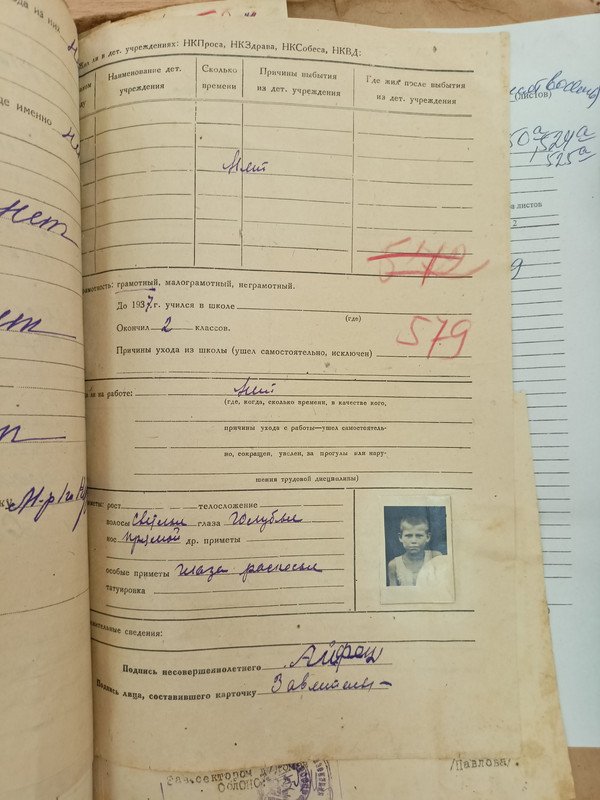 да из них
Жил ли в дет. учреждениях: НКПроса, НКЗдрава, НКСобеса, НКВД:
Наименование дет. учреждения
Сколько времени
Причины выбытия из дет. учреждения
Где жил после выбытия из дет. учреждения
Нет
542
грамотный, малограмотный, неграмотный.
До 1937 г. учился в школе
(где)
Окончил 2 классов.
579
Причины ухода из школы (ушел самостоятельно, исключен)
на работе: Нет
(где, когда, сколько времени, в качестве кого,
причины ухода с работы—ушел самостоятель-
но, сокращен, уволен, за прогулы или нару-
шения трудовой дисциплины)
рост телосложение
волосы светлые глаза голубые
нос прямой др. приметы
особые приметы глаза
татуировка
сведения:
Подпись несовершеннолетнего
Подпись лица, составившего карточку
где именно
нет
(листов)
524а
525а
листов
2
9
Зав. сектором
ОблОНО:
/Павлова/.